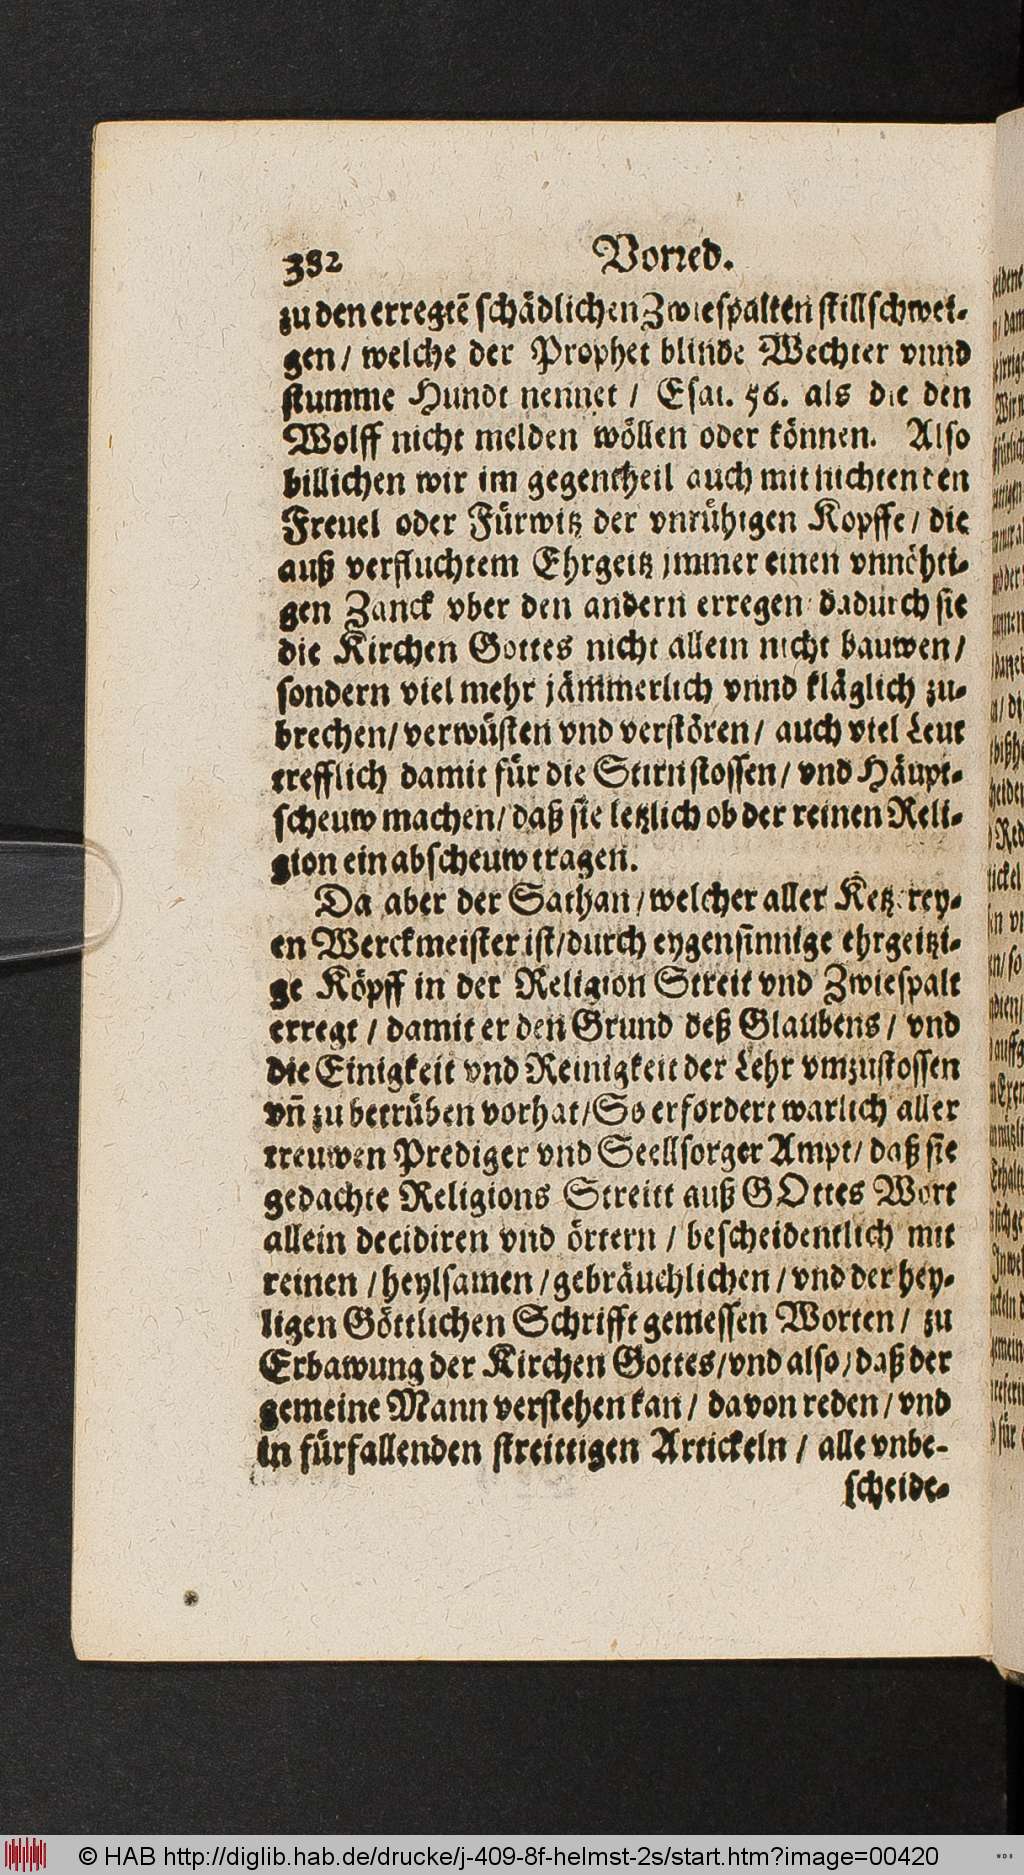 382
Vorred.
zu den erregtẽ schädlichen Zwiespalten stillschwei-
gen / welche der Prophet blinde Wechter vnnd
stumme Hundt nennet / Esai. 56. als die den
Wolff nicht melden wöllen oder können. Also
billichen wir im gegentheil auch mit nichten den
Freuel oder Fürwitz der vnrühigen Kopffe / die
auß verfluchtem Ehrgeitz jmmer einen vnnöhti-
gen Zanck vber den andern erregen dadurch sie
die Kirchen Gottes nicht allein nicht bauwen /
sondern viel mehr jämmerlich vnnd kläglich zu-
brechen / verwüsten vnd verstören / auch viel Leut
trefflich damit für die Stirn stossen / vnd Häupt-
scheuw machen / daß sie letzlich ob der reinen Reli-
gion ein abscheuw tragen.
Da aber der Sathan / welcher aller Ketzerey-
en Werckmeister ist / durch eygensinnige ehrgeitzi-
ge Köpff in der Religion Streit vnd Zwiespalt
erregt / damit er den Grund deß Glaubens / vnd
die Einigkeit vnd Reinigkeit der Lehr vmzustossen
vñ zu betrüben vorhat / So erfordert warlich aller
treuwen Prediger vnd Seellsorger Ampt / daß sie
gedachte Religions Streitt auß GOttes Wort
allein decidiren vnd örtern / bescheidentlich mit
reinen / heylsamen / gebräuchlichen / vnd der hey-
ligen Göttlichen Schrifft gemessen Worten / zu
Erbawung der Kirchen Gottes / vnd also / daß der
gemeine Mann verstehen kan / davon reden / vnd
in fürfallenden streittigen Artickeln / alle vnbe-
scheide-
© HAB http://diglib.hab.de/drucke/j-409-8f-helmst-2s/start.htm?image=00420